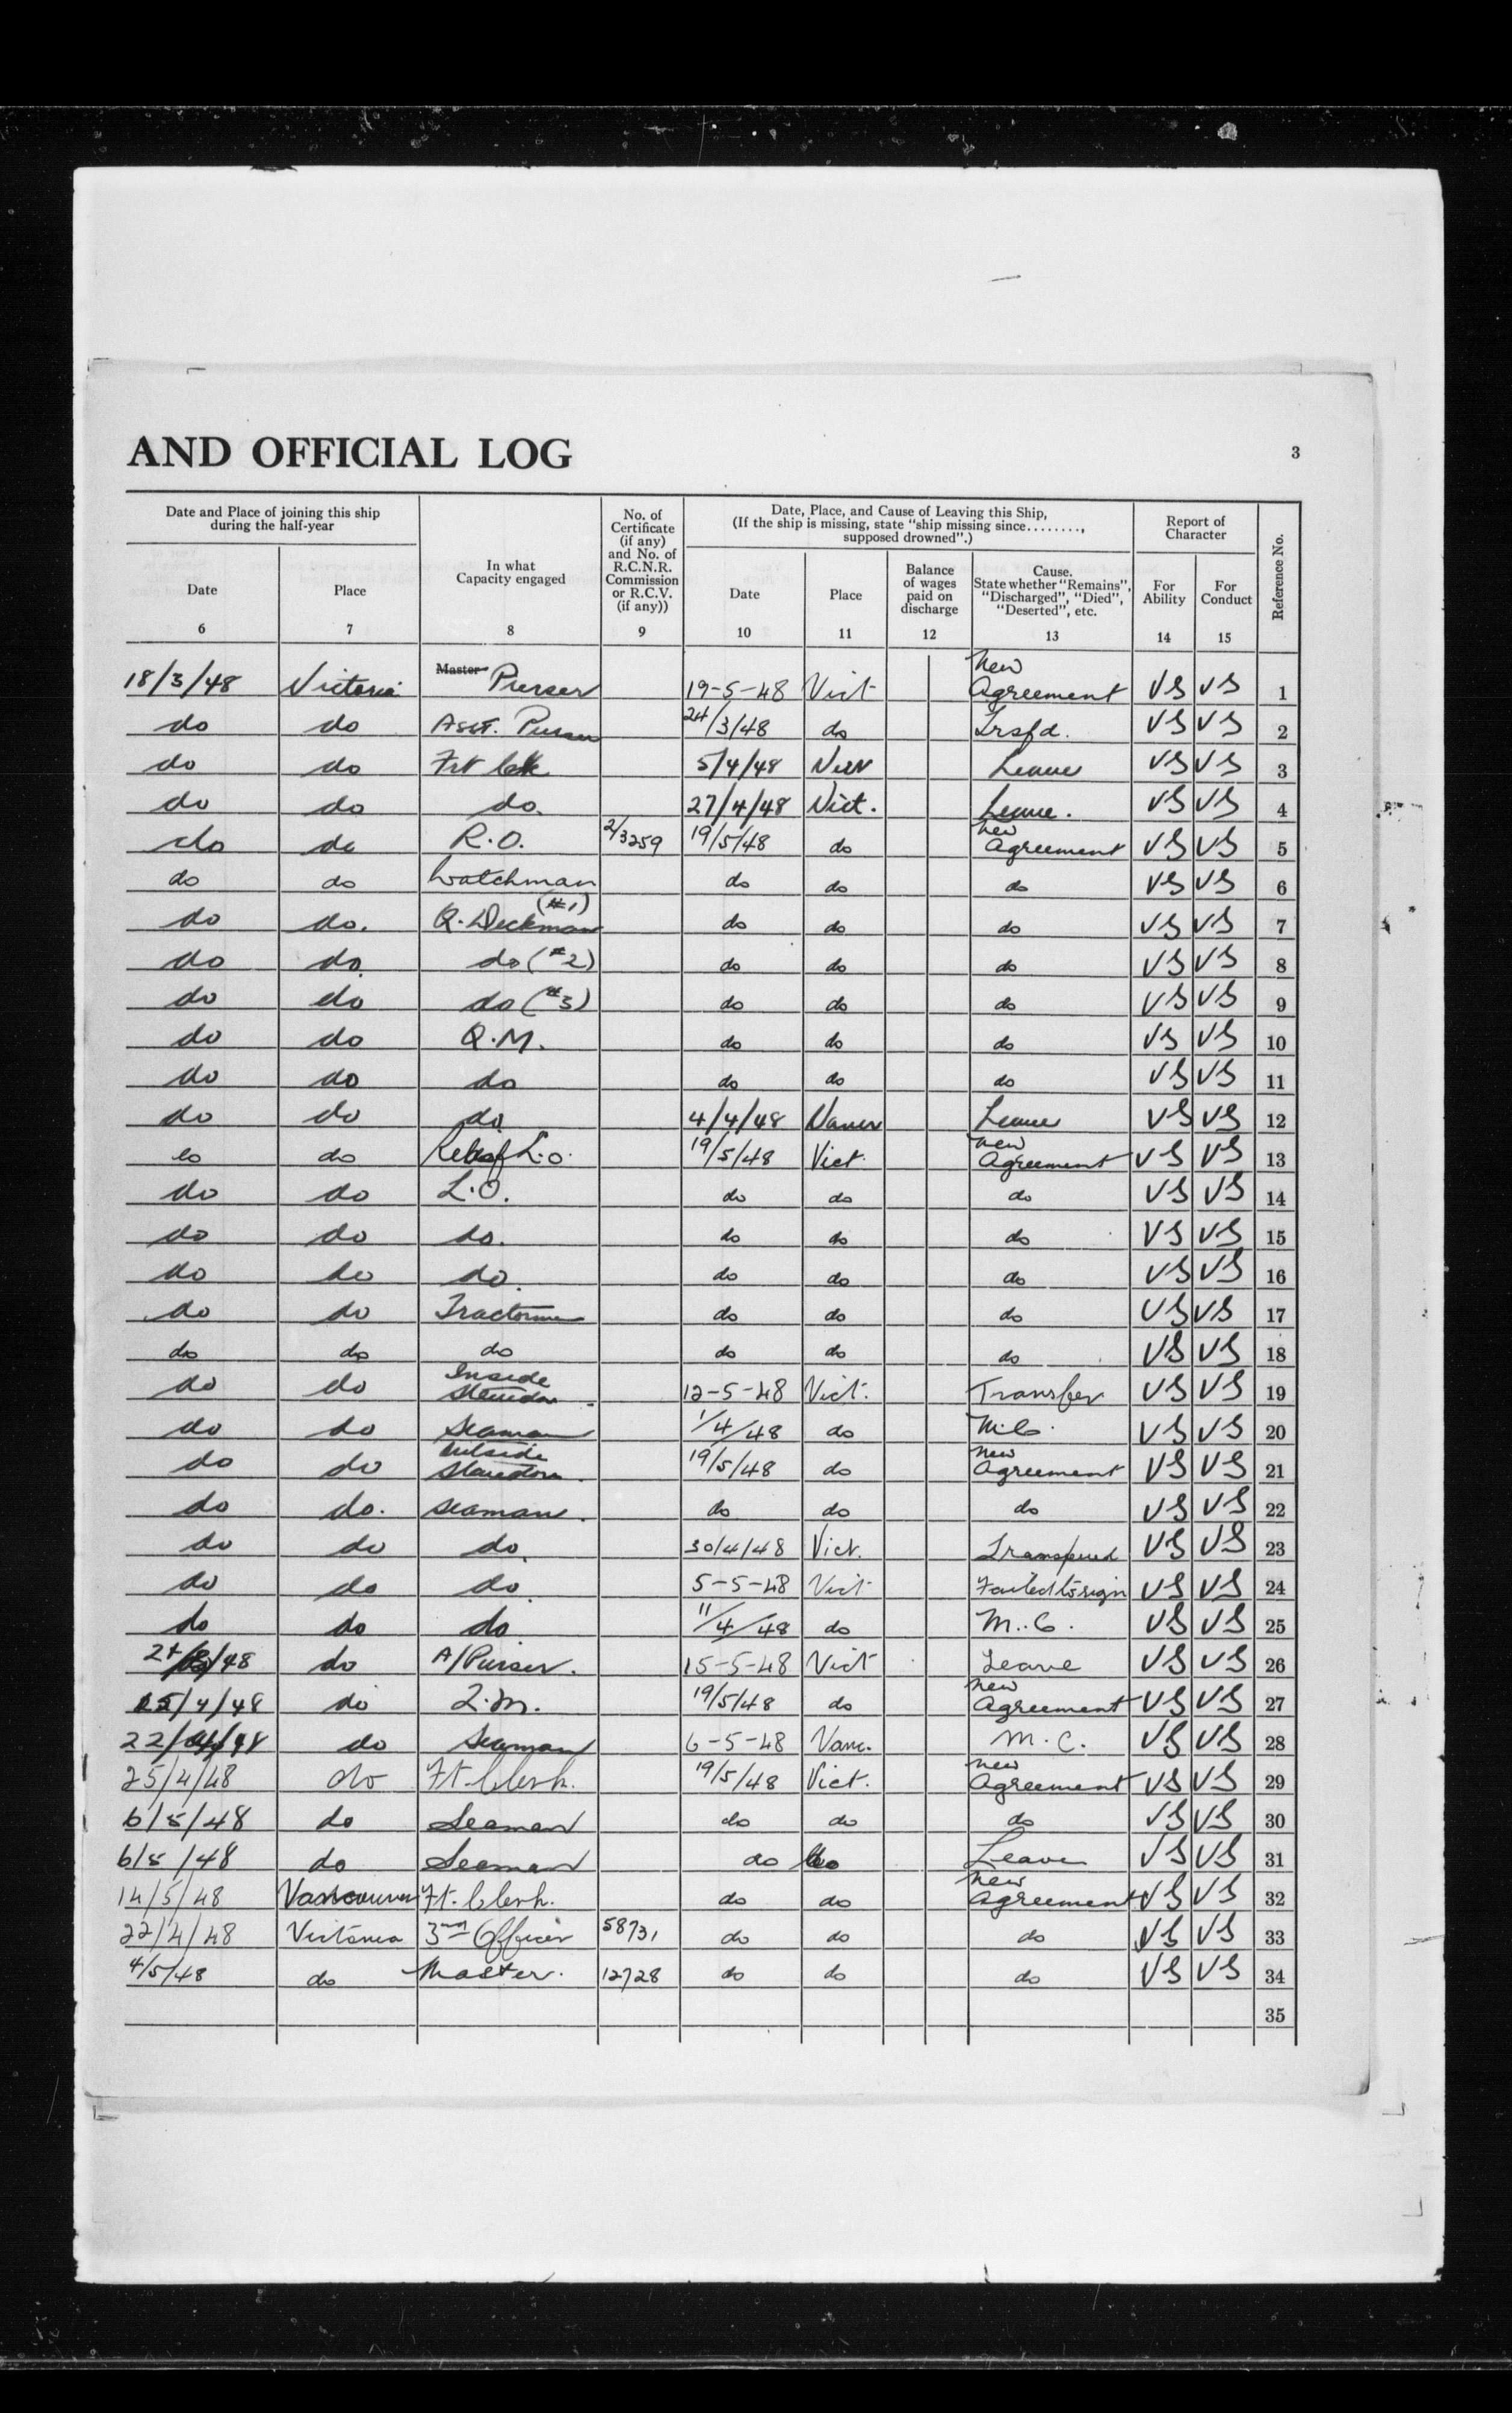 AND OFFICIAL LOG 3
Date and Place of joining this ship during the half-year
In what Capacity engaged
No. of Certificate (if any) and No. of R.C.N.R. Commission or R.C.V. (if any))
Date, Place, and Cause of Leaving this Ship, (If the ship is missing, state "ship missing since........, supposed drowned".)
Report of Character
Reference No.
Date Place Date Place Balance of wages paid on discharge Cause. State whether "Remains", "Discharged", "Died", "Deserted", etc. For Ability For Conduct
6 7 8 9 10 11 12 13 14 15
18/3/48 Victoria Master Purser 19-5-48 Vict New Agreement VS VS 1
do do Asst. Purser 24/3/48 do Trsfd. VS VS 2
do do Frt 5/4/48 Leave VS VS 3
do do do. 27/4/48 Vict. Leave. VS VS 4
do do R.O. 2/3259 19/5/48 do New Agreement VS VS 5
do do Watchman do do do VS VS 6
do do. Q. Deckman (#1) do do do VS VS 7
do do. do (#2) do do do VS VS 8
do do do (#3) do do do VS VS 9
do do Q.M. do do do VS VS 10
do do do do do do VS VS 11
do do do. 4/4/48 Vancr Leave VS VS 12
do do Relief L.O. 19/5/48 Vict. New Agreement VS VS 13
do do L.O. do do do VS VS 14
do do do. do do do VS VS 15
do do do. do do do VS VS 16
do do Tractorman do do do VS VS 17
do do do do do do VS VS 18
do do Inside 12-5-48 Vict. Transfer VS VS 19
do do Seaman 1/4/48 do M.C. VS VS 20
do do 19/5/48 do New Agreement VS VS 21
do do. Seaman. do do do VS VS 22
do do do. 30/4/48 Vict. Transferred VS VS 23
do do do. 5-5-48 Vict Failed to sign VS VS 24
do do do. 11/4/48 do M.C. VS VS 25
24/3/48 do A/Purser. 15-5-48 Vict Leave VS VS 26
25/4/48 do Q.M. 19/5/48 do New Agreement VS VS 27
22/4/48 do Seaman 6-5-48 Vanc. M.C. VS VS 28
25/4/48 do Ft. Clerk. 19/5/48 Vict. New Agreement VS VS 29
6/5/48 do Seaman do do do VS VS 30
6/5/48 do Seaman do do Leave VS VS 31
14/5/48 Vancouver Ft. Clerk. do do New Agreement VS VS 32
22/4/48 Victoria 3rd Officer 58731 do do do VS VS 33
4/5/48 do Master. 12728 do do do VS VS 34
35